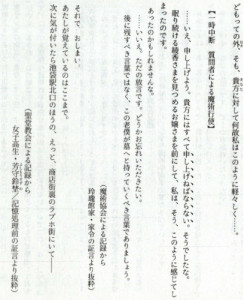 どもっての外。そも、貴方に対して何故私はこのように軽々しく……。
【一時中断　質問者による魔術行使】
……いえ、申し上げよう。貴方にはすべて申し上げねばならない。そうでしたな。
眠り続ける綾香さまを見つめるお嬢さまを前にして、私は、そう、このように感じてし
まったのです。
あったのかもしれませんな。
……いいえ。ただの放言です。どうかお忘れいただきたい。
後に残すべき言葉ではなく、この老僕が墓へと持っていくべき言葉でありましょう。
（魔術協会による記録から
玲瓏館家・家令の証言より抜粋）
それで　おしまい。
あたしが覚えているのはここまで。
次に気が付いたら池袋駅北口のほうの、えっと、商店街裏のラブホ街にいて――
（聖堂教会による記録から
女子高生・芳守鈴琴／記憶処理前の証言より抜粋）